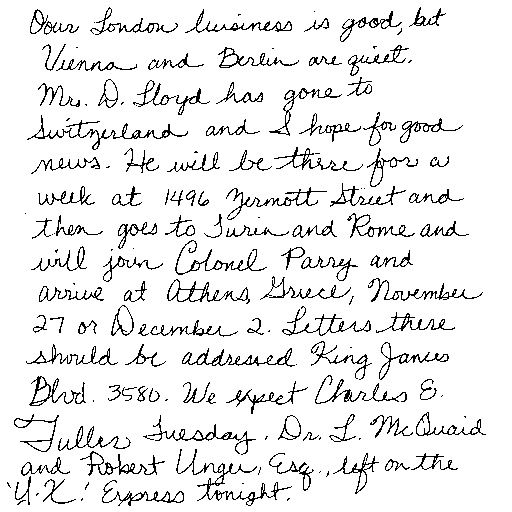 Our London business is good, but
Vienna and Berlin are quiet.
Mr. D. Lloyd has gone to
Switzerland and I hope for good
news. He will be there for a
week at 1496 Zermott Street and
then goes to Turin and Rome and
will join Colonel Parry and
arrive at Athens, Greece, November
27 or December 2. Letters there
should be addressed King James
Blvd. 3580. We expect Charles E.
Fuller Tuesday. Dr. L. McQuaid
and Robert Unger, Esq., left on the
'Y.X.' Express tonight.